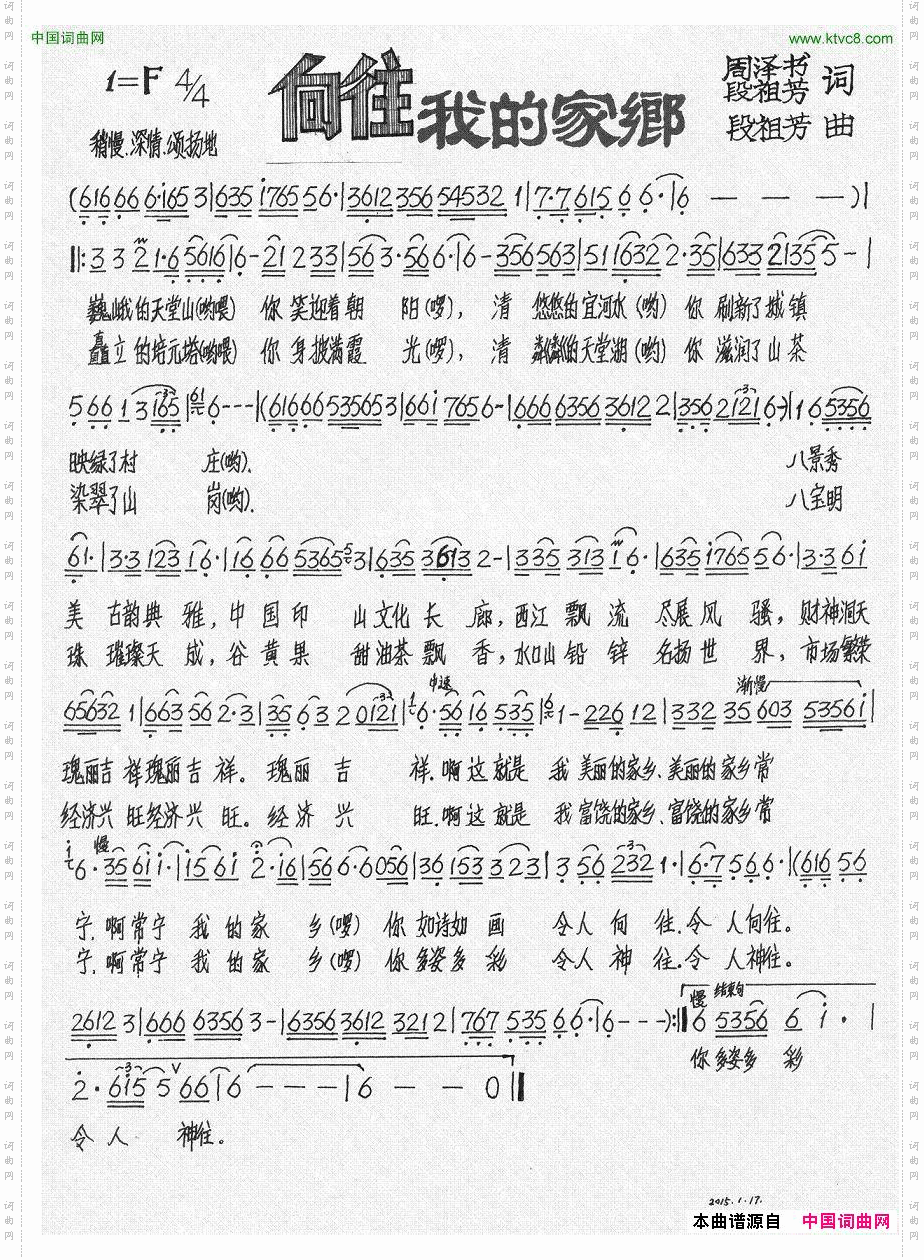 中国词曲网
www.ktvc8.com
1=F 4/4
向往我的家鄉
周泽书 词
段祖芳
段祖芳 曲
稍慢.深情.颂扬地
(616 66 6·165 3|635 i765 56·|3612 356 54532 1|7·7 615 6 6·|6 — — —)|
‖:3 3 2 1·6 5616|6-21 233|563 3·56 6·|6-356563|51 1632 2·35|633 2135 5-|
巍峨的天堂山(哟喂) 你 笑迎着朝 阳(啰), 清 悠悠的宜河水(哟) 你 刷新了城镇
矗立的培元塔(哟喂) 你 身披满霞 光(啰), 清 粼粼的天堂湖(哟) 你 滋润了山茶
5 66 1 3 165|6---|(616 66 535653|66i 765 6-|666 6356 3612 2|356 2121 6-)|1 6 5356
映绿了村 庄(哟). 八景秀
染翠了山 岗(哟). 八宝明
61·|3·3 123 i6·|16 66 5365 3|635 3613 2-|335 313 i 6·|635 i765 56·|3·3 6i
美 古韵典 雅,中 国 印 山文化 长 廊,西江 飘 流 尽展风 骚,财神洞天
珠 璀璨天 成,谷 黄 果 甜油茶飘 香,水口山 铅 锌 名扬世 界,市场繁荣
中速 渐慢
65632 1|663 56 2·3|35 6 3 2 0121|6·56 16 535|1-226 12|332 35 603 5356i|
瑰丽吉 祥瑰丽吉 祥。瑰丽 吉 祥.啊这就是 我 美丽的家乡、美丽的家乡常
经济兴 旺经济兴 旺。经济 兴 旺.啊这就是 我富饶的家乡、富饶的家乡常
慢
6·35 6i i·|i5 6i 2·i6|56 6·6056|36 153 323|3 56 232 1·|6·7 56 6·|(616 56
宁.啊常宁 我 的 家 乡(啰) 你 如诗如 画 令人 向 往.令 人向往。
宁.啊常宁 我 的 家 乡(啰) 你 多姿多 彩 令人 神 往.令 人神往。
慢 结束句
2612 3|666 6356 3-|6356 3612 3212|767 535 66·|6---):‖6 5356 6 i·|
你多姿多 彩
2·6i5 5 ∨ 66|6---|6 - - 0‖
令 人 神往。
2015.1.17.
本曲谱源自 中国词曲网
词曲网